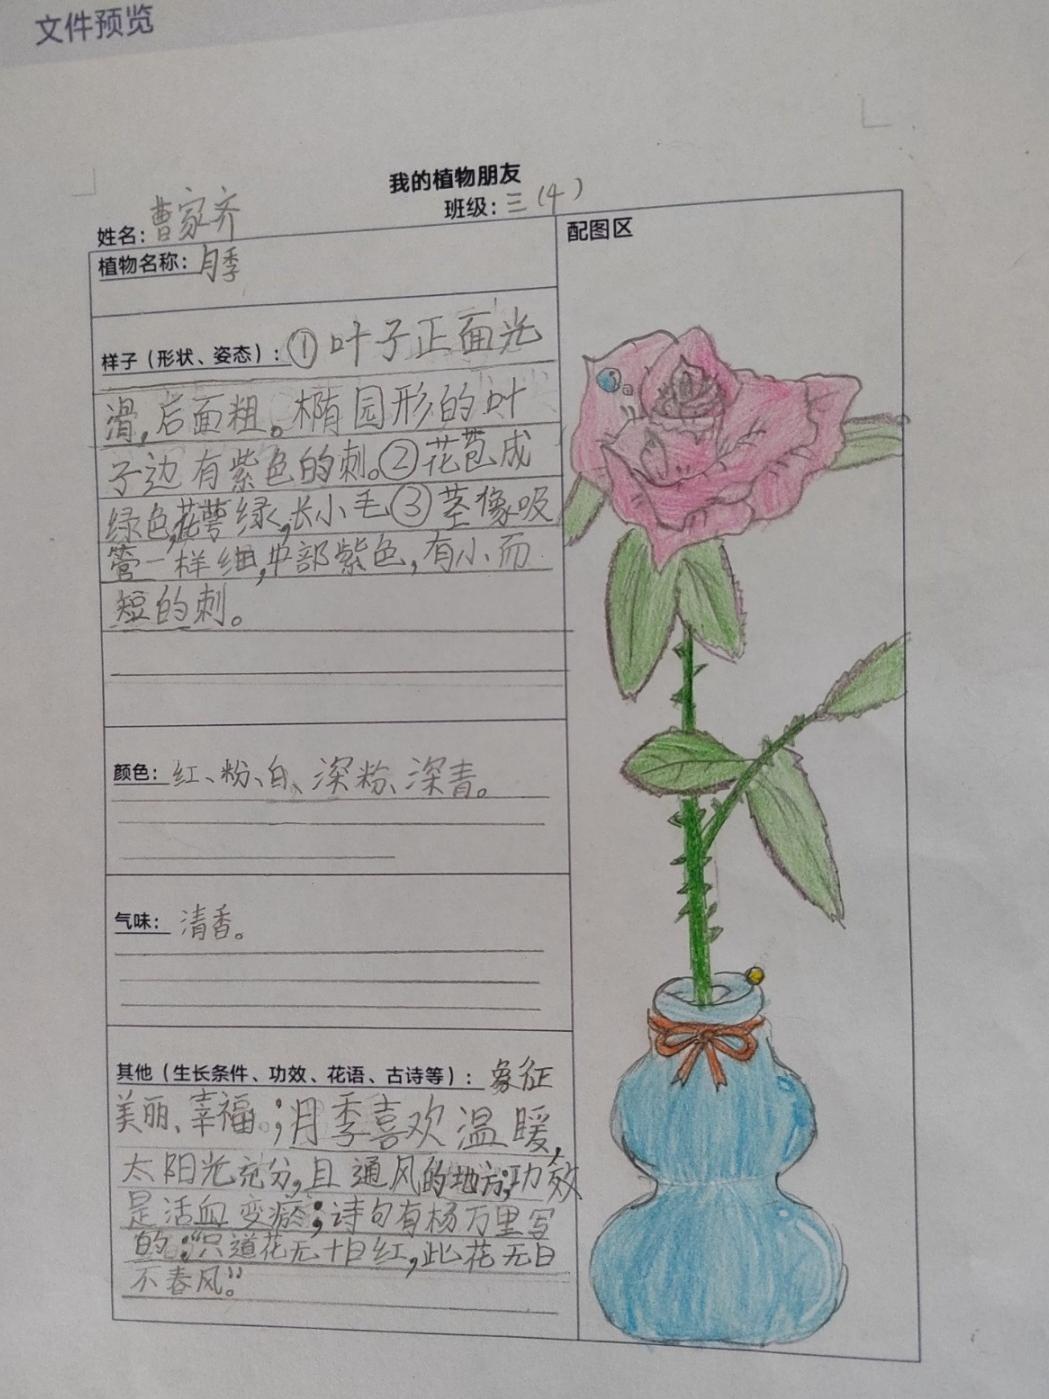 文件预览
我的植物朋友
姓名：曹家齐 班级：三（4）
植物名称：月季
配图区
样子（形状、姿态）：①叶子正面光
滑，后面粗。椭园形的叶
子边有紫色的刺。②花苞成
绿色，花萼绿，长小毛③茎像吸
管一样细，中部紫色，有小而
短的刺。
颜色：红、粉、白、深粉、深青。
气味：清香。
其他（生长条件、功效、花语、古诗等）：象征
美丽、幸福；月季喜欢温暖，
太阳光充分，且通风的地方；功效
是活血变瘀；诗句有杨万里写
的：“只道花无十日红，此花无日
不春风。”